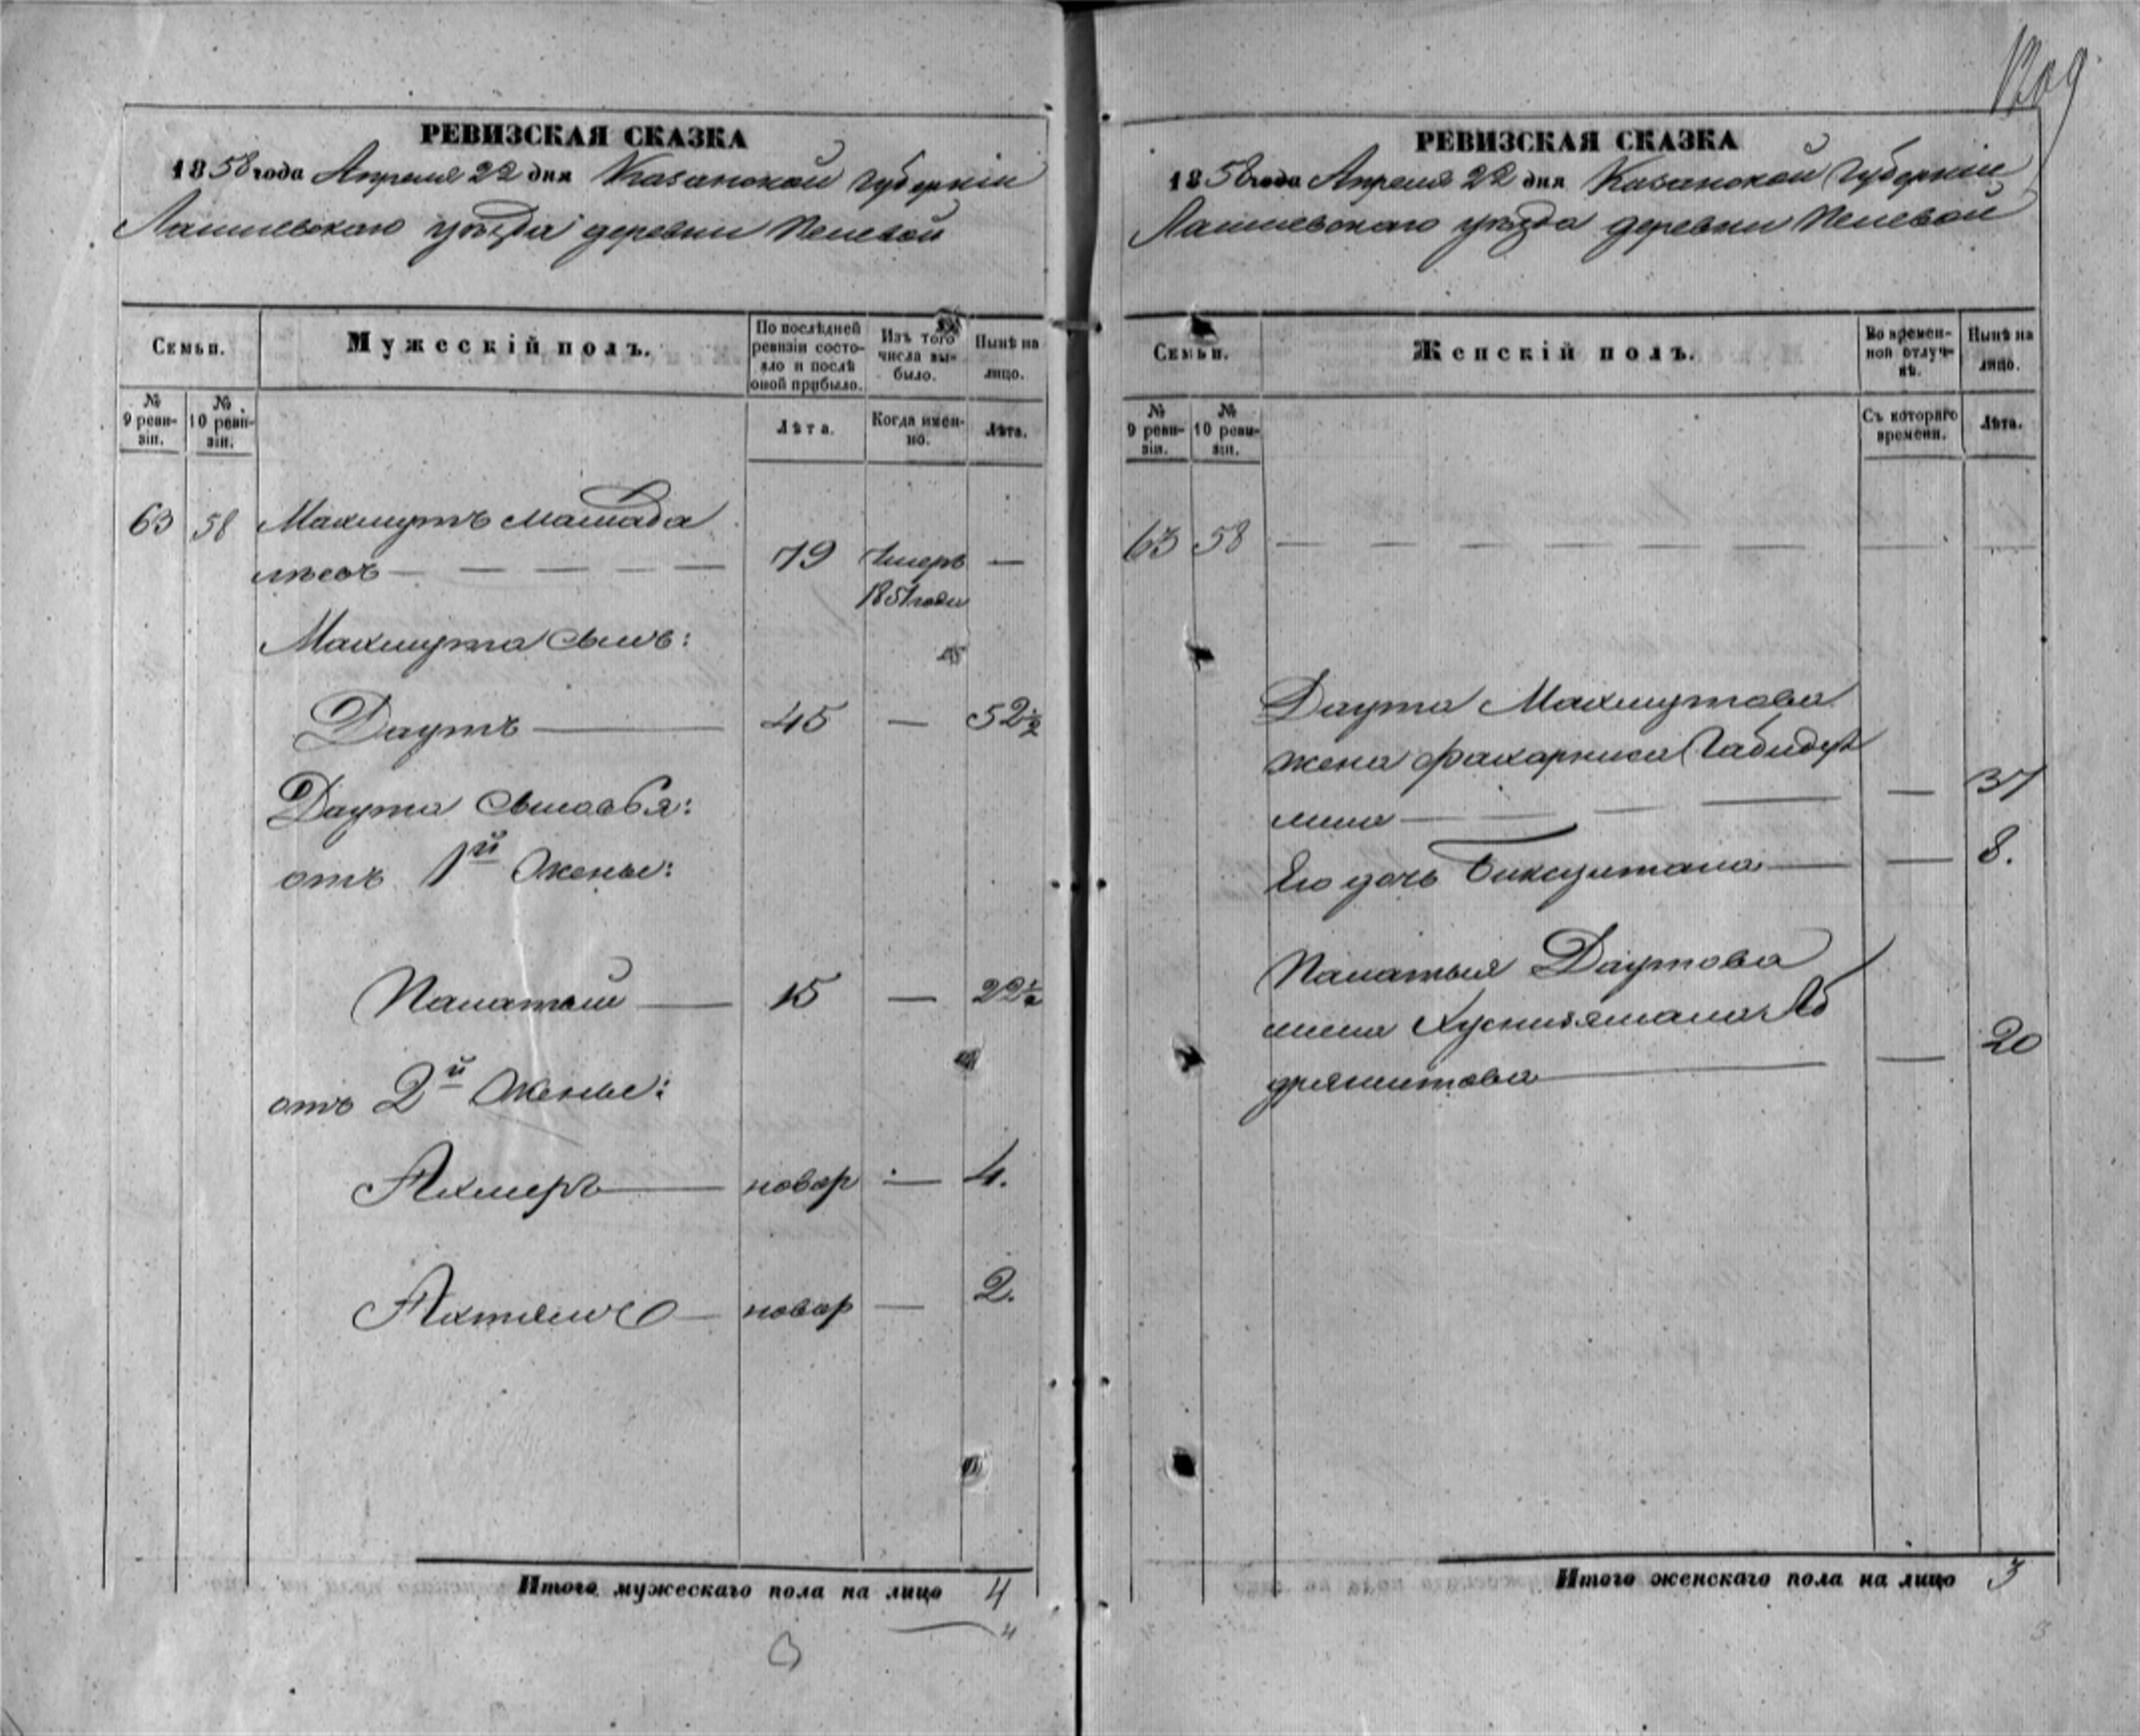 1209
РЕВИЗСКАЯ СКАЗКА
1858 года Апреля 22 дня Казанской губернiи
Лаишевскаго уѣзда деревни
Семьи.
Мужескiй полъ.
По послѣдней ревизiи состояло и послѣ оной прибыло.
Изъ того числа выбыло.
Нынѣ на лицо.
№ 9 ревизiи.
№ 10 ревизiи.
Лѣта.
Когда именно.
Лѣта.
63 58 Махмутъ
79 Умеръ —
1851 года
Махмута сынъ:
Даутъ — 45 — 52 1/2
Даута сыновья:
отъ 1й жены:
15 — 22 1/2
отъ 2й жены:
Ахмеръ — новор — 4.
Ахтямъ — новор — 2.
Итого мужескаго пола на лицо 4
4
РЕВИЗСКАЯ СКАЗКА
1858 года Апреля 22 дня Казанской губернiи
Лаишевскаго уѣзда деревни
Семьи.
Женскiй полъ.
Во временной отлучкѣ.
Нынѣ на лицо.
№ 9 ревизiи.
№ 10 ревизiи.
Съ котораго времени.
Лѣта.
63 58 — — — — — — — —
Даута Махмутова
жена Фахарниса Габидул
лина — — 37
Его дочь — — 8.
Даутова
жена Аб
дряшитова — — 20
Итого женскаго пола на лицо 3
3